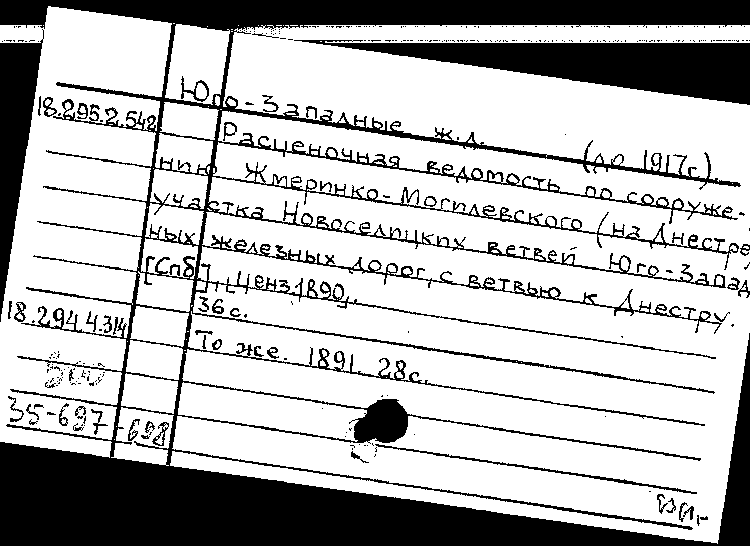 Юго-Западные ж.д. (до 1917г).
18.295.2.542
Расценочная ведомость по сооруже-
нию Жмеринко-Могилевского (на Днестре)
участка Новоселицких ветвей Юго-Запад
ных железных дорог, с ветвью к Днестру.
[Спб], ценз. 1890.
36 с.
18.294.4.314
То же. 1891. 28с.
500
35-697-698